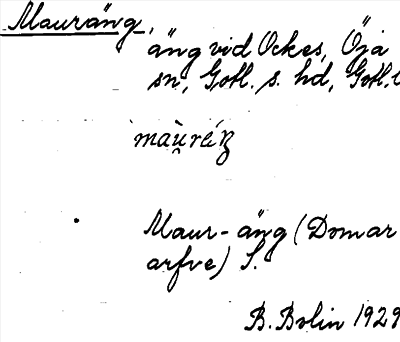 Mauräng,
äng vid Ockes, Öja
sn, Gotl. s. hd, Gotl.
Maur-äng (Domar
arfve) S.
B. Bolin 1929